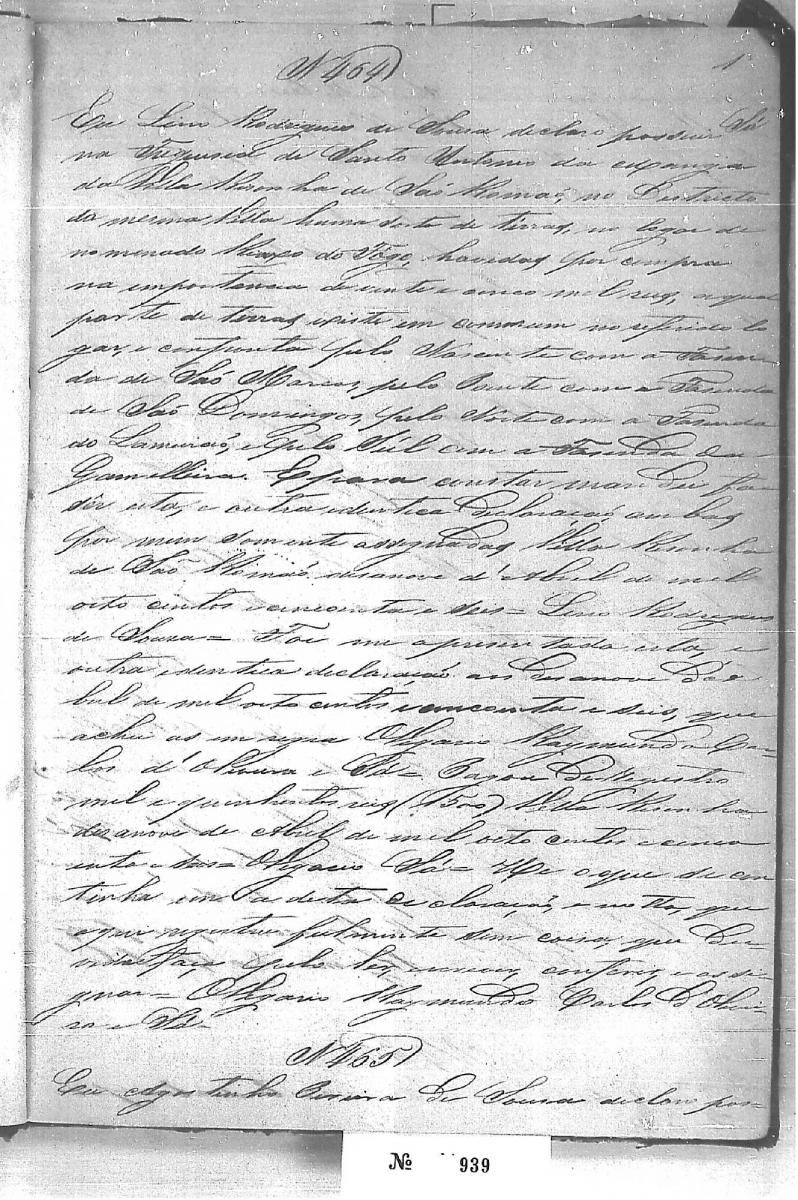 N 464
1
Eu Lino Rodrigues de Sousa declaro possuir Sá
na Freguesia de Santo Antonio da
da Villa Risonha de São Romão, no Districto
da mesma Villa huma sorte de terras, no logar de
nominado do Fogo, havidas por compra
na importancia de vinte e cinco mil reis, a qual
parte de terras, existe em commum no referido lo
gar, e confronta pelo Nascente com a Fasen-
da de São Marcos, pelo Poente com a Fasenda
de São Domingos, pelo Norte com a Fasenda
do Lamarão, e pelo Sul com a Fasenda da
Gamelleira. E para constar mandei fa-
ser esta, e outra identica declaração, ambas
por mim somente assignadas, Villa Risonha
de São Romão, desanove d'Abril de mil
oito centos e cincoenta e seis = Lino Rodrigues
de Sousa = Foi me apresentada esta, e
outra identica declaração aos desanove d'A-
bril de mil oito centos e cincoenta e seis, que
achei as O Vigario Raymundo Car-
los d'Oliveira e Sá = Pagou de registro
mil e quinhentos reis (1500) Villa Risonha
desanove de Abril de mil oito centos e cinco
enta e seis = O Vigario Sá = He o que se con
tinha em a dita declaração, e notta, que
aqui registrei fielmente sem coisa que du-
vida faça pelo ler, escrever, conferir, e assi-
gnar = O Vigario Raymundo Carlos d'Olivei-
ra e Sá
N 465
Eu Agostinho Pereira de Sousa declaro pos-
Nº 939